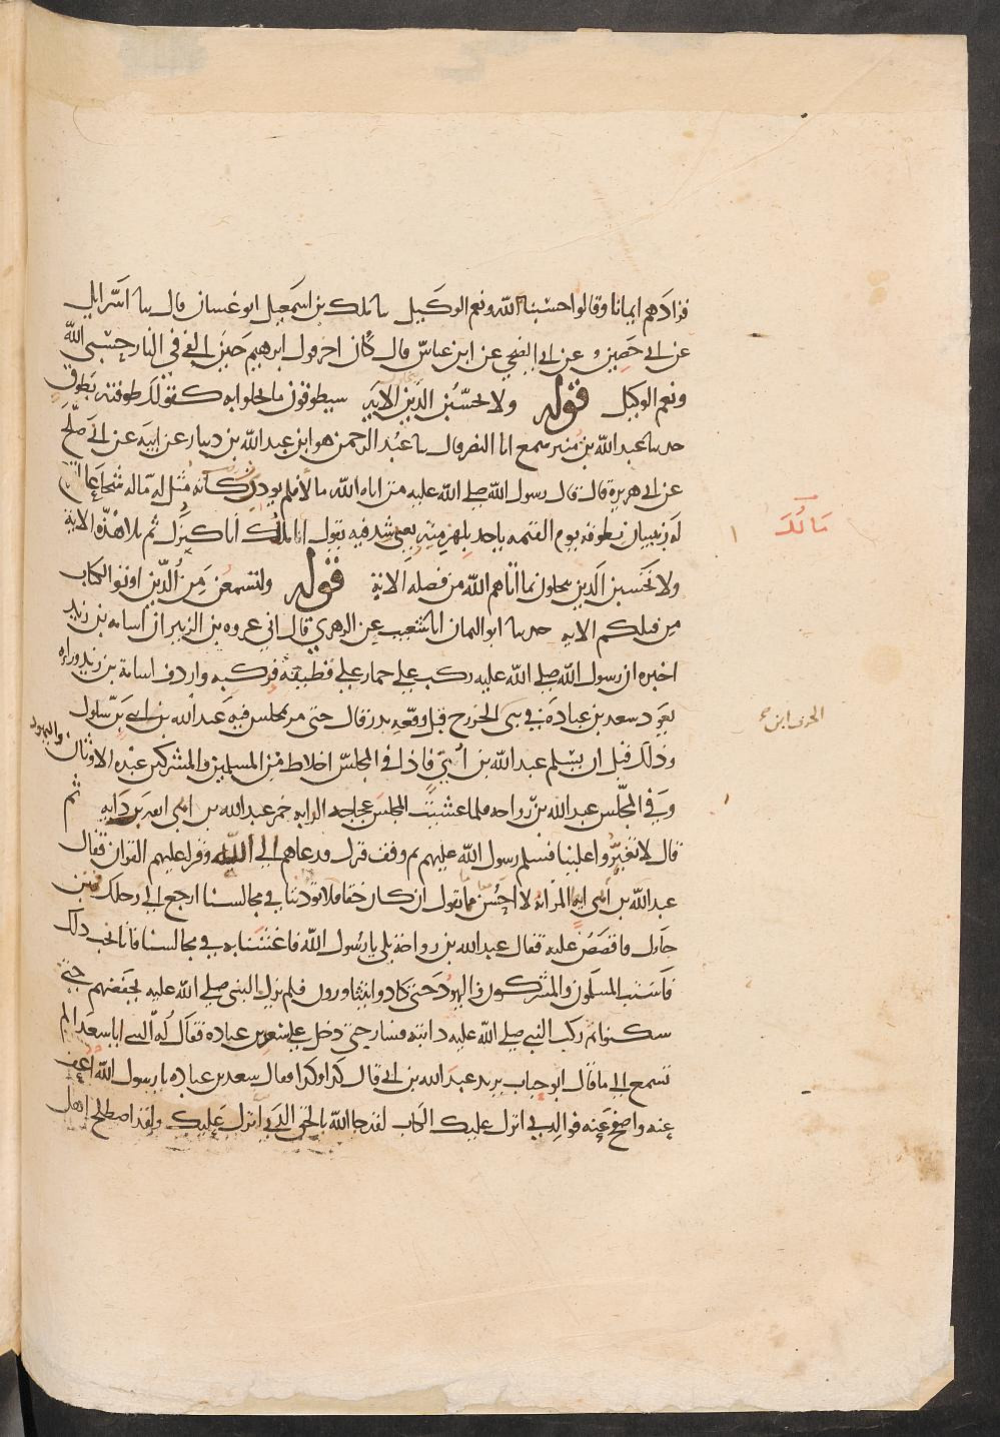 فزادهم ايمانا وقالوا حسبنا الله ونعم الوكيل نا ملك بن اسمعيل ابو غسان قال نا اسرايل
عن ابي حصين و عن ابي الضحى عن ابن عباس قال كان اخر قول ابرهيم حين القي في النار حسبي الله
ونعم الوكيل قوله ولا تحسبن الذين الاية سيطوقون ما بخلوا به كقولك طوقته بطوق
حدثنا عبد الله بن منير سمع ابا النضر قال نا عبد الرحمن هو ابن عبد الله بن دينار عن ابيه عن ابي صلح
عن ابي هريرة قال قال رسول الله صلى الله عليه من اتاه الله مالا فلم يود زكاته مثل له ماله شجاعا
له زبيبتان يطوقه يوم القيمه ياخذ بلهزمتيه يعني شدقيه يقول انا مالك انا كنزك ثم تلا هذه الاية
مالك
ولا تحسبن الذين يبخلون بما اتاهم الله من فضله الاية قوله ولتسمعن من الذين اوتوا الكتاب
من قبلكم الايه حدثنا ابو اليمان انا شعيب عن الزهري قال اني عروه بن الزبير ان اسامه بن زيد
اخبره ان رسول الله صلى الله عليه ركب على حمار على قطيفة فركبه واردف اسامة بن زيد وراءه
يعود سعد بن عبادة في بني الخزرج قبل وقعه بدر قال حتى مر بمجلس فيه عبد الله بن ابي بن سلول
وذلك قبل ان يسلم عبد الله بن ابي فاذا في المجلس اخلاط من المسلمين والمشركين عبده الاوثان واليهود
وفي المجلس عبد الله بن رواحه فلما غشيت المجلس عجاجه الدابه خمر عبد الله بن ابي انفه بردايه ثم
قال لا تغبروا علينا فسلم رسول الله عليهم ثم وقف فنزل فدعاهم الى الله وقرا عليهم القران فقال
عبد الله بن ابي ايها المرء انه لا احسن مما تقول ان كان حقا فلا توذنا في مجالسنا ارجع الى رحلك فمن
جاءك فاقصص عليه فقال عبد الله بن رواحة بلى يا رسول الله فاغشنا به في مجالسنا فانا نحب ذلك
فاستب المسلمون والمشركون واليهود حتى كادوا يتثاورون فلم يزل النبي صلى الله عليه يخفضهم حتى
سكنوا ثم ركب النبي صلى الله عليه دابته فسار حتى دخل على سعد بن عباده فقال له النبي ايا سعد الم
تسمع الى ما قال ابو حباب يريد عبد الله بن ابي قال كذا وكذا فقال سعد بن عباده يا رسول الله اعف
عنه واصفح عنه فوالذي انزل عليك الكتاب لقد جا الله بالحق الذي انزل عليك ولقد اصطلح اهل